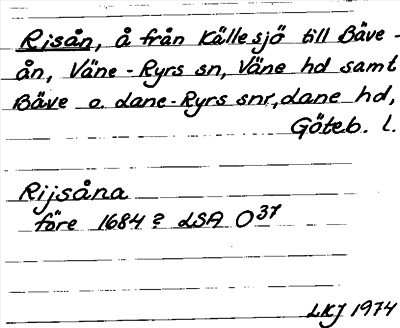 Risån, å från Källesjö till Bäve-
ån, Väne-Ryrs sn, Väne hd samt
Bäve o. Lane-Ryrs snr, Lane hd,
Göteb. l.
Rijsåna
före 1684? LSA O37
LKJ 1974